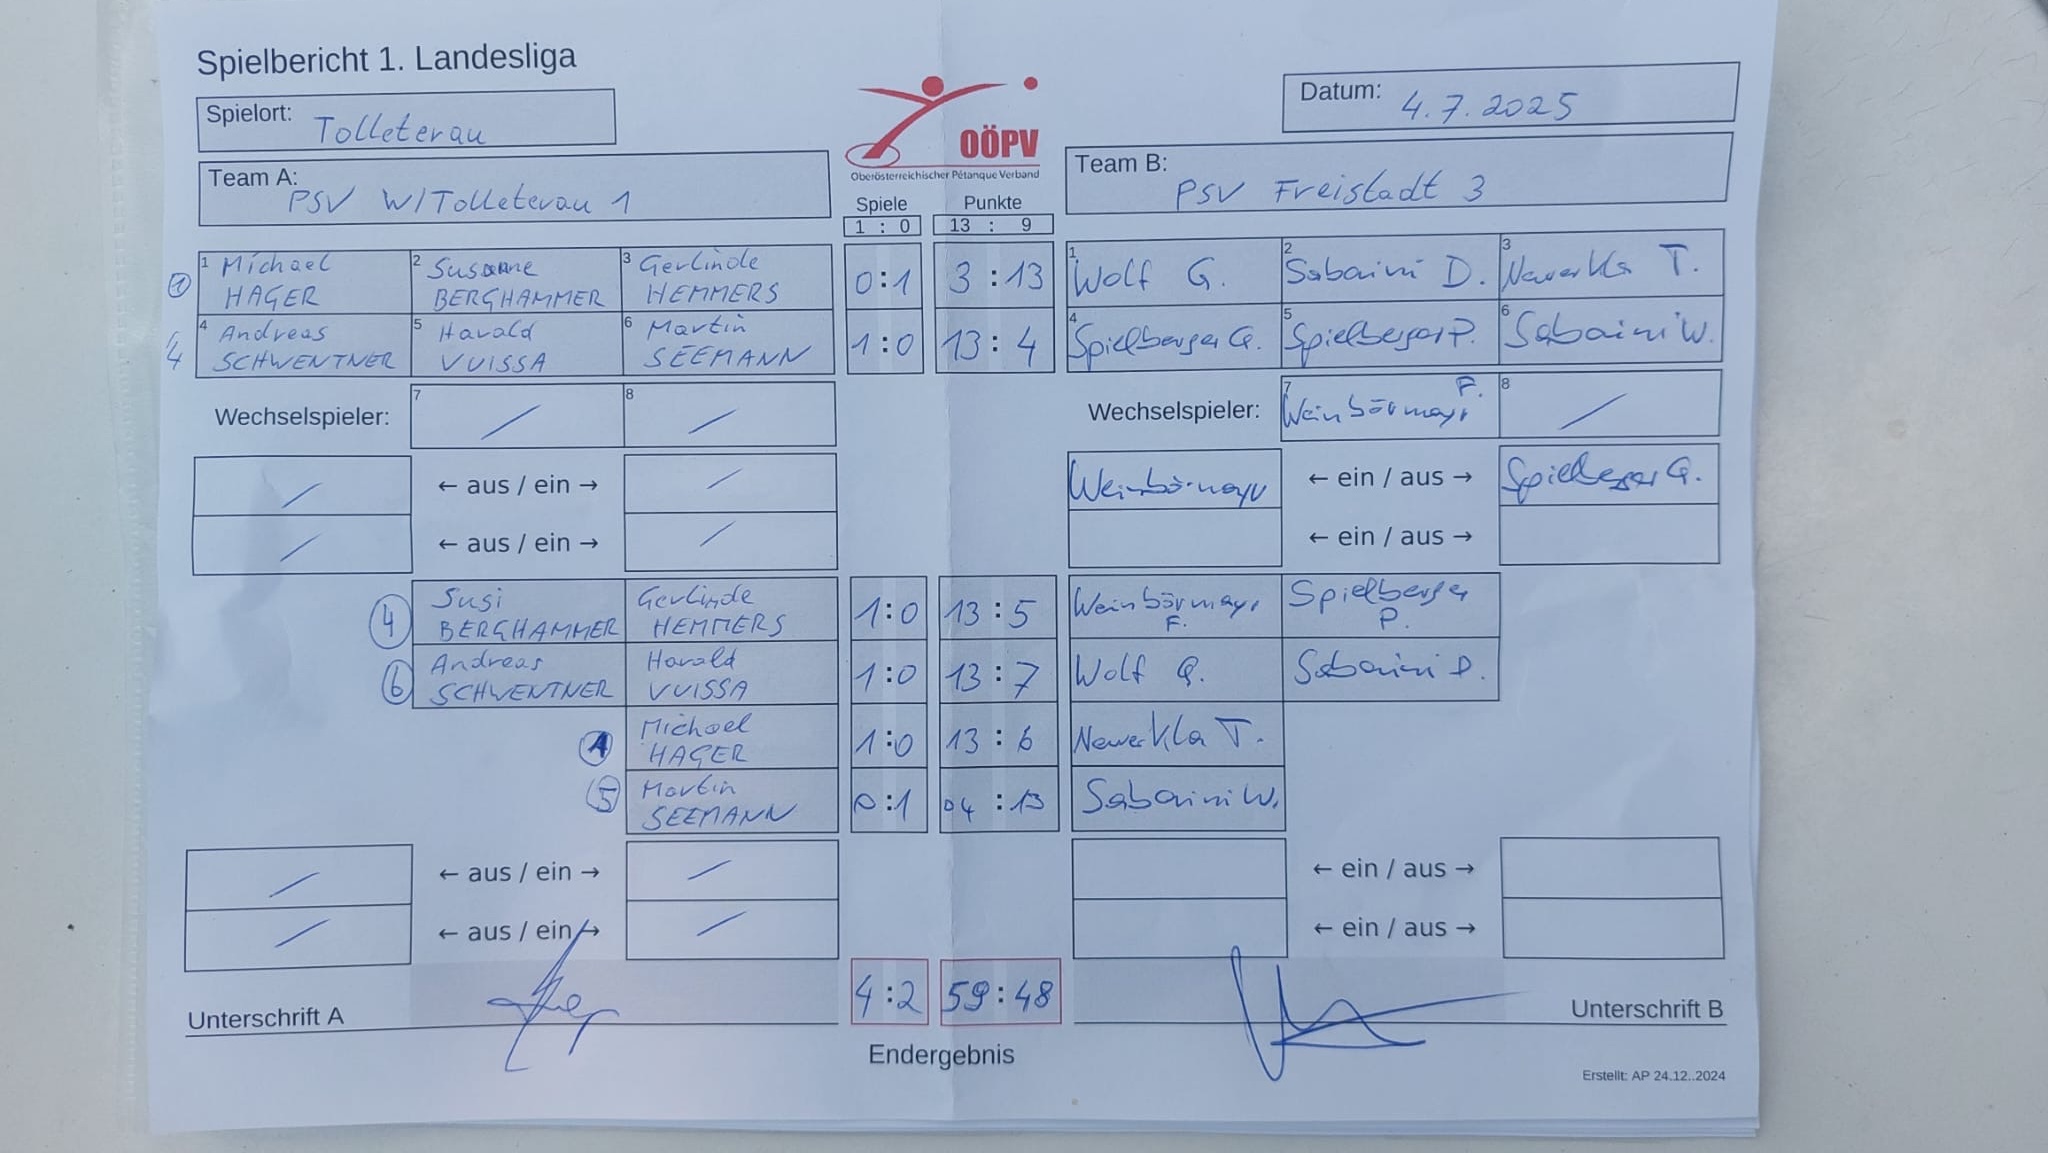 Spielbericht 1. Landesliga
Spielort: Tolleterau
OÖPV
Oberösterreichischer Pétanque Verband
Datum: 4.7.2025
Team A: PSV W/Tolleterau 1
Team B: PSV Freistadt 3
Spiele Punkte
1 : 0 13 : 9
1 Michael HAGER 2 Susanne BERGHAMMER 3 Gerlinde HEMMERS 0:1 3:13 1 Wolf G. 2 Sabaini D. 3 Newerkla T.
4 4 Andreas SCHWENTNER 5 Harald VUISSA 6 Martin SEEMANN 1:0 13:4 4 Spielberger G. 5 Spielberger P. 6 Sabaini W.
Wechselspieler: 7 / 8 / Wechselspieler: 7 Weinbörmayr F. 8 /
/ ← aus / ein → / Weinbörmayr ← ein / aus → Spielberger G.
/ ← aus / ein → / ← ein / aus →
4 Susi BERGHAMMER Gerlinde HEMMERS 1:0 13:5 Weinbörmayr F. Spielberger P.
6 Andreas SCHWENTNER Harald VUISSA 1:0 13:7 Wolf G. Sabaini D.
1 Michael HAGER 1:0 13:6 Newerkla T.
5 Martin SEEMANN 0:1 04:13 Sabaini W.
/ ← aus / ein → / ← ein / aus →
/ ← aus / ein → / ← ein / aus →
Unterschrift A 4:2 59:48 Unterschrift B
Endergebnis
Erstellt: AP 24.12..2024